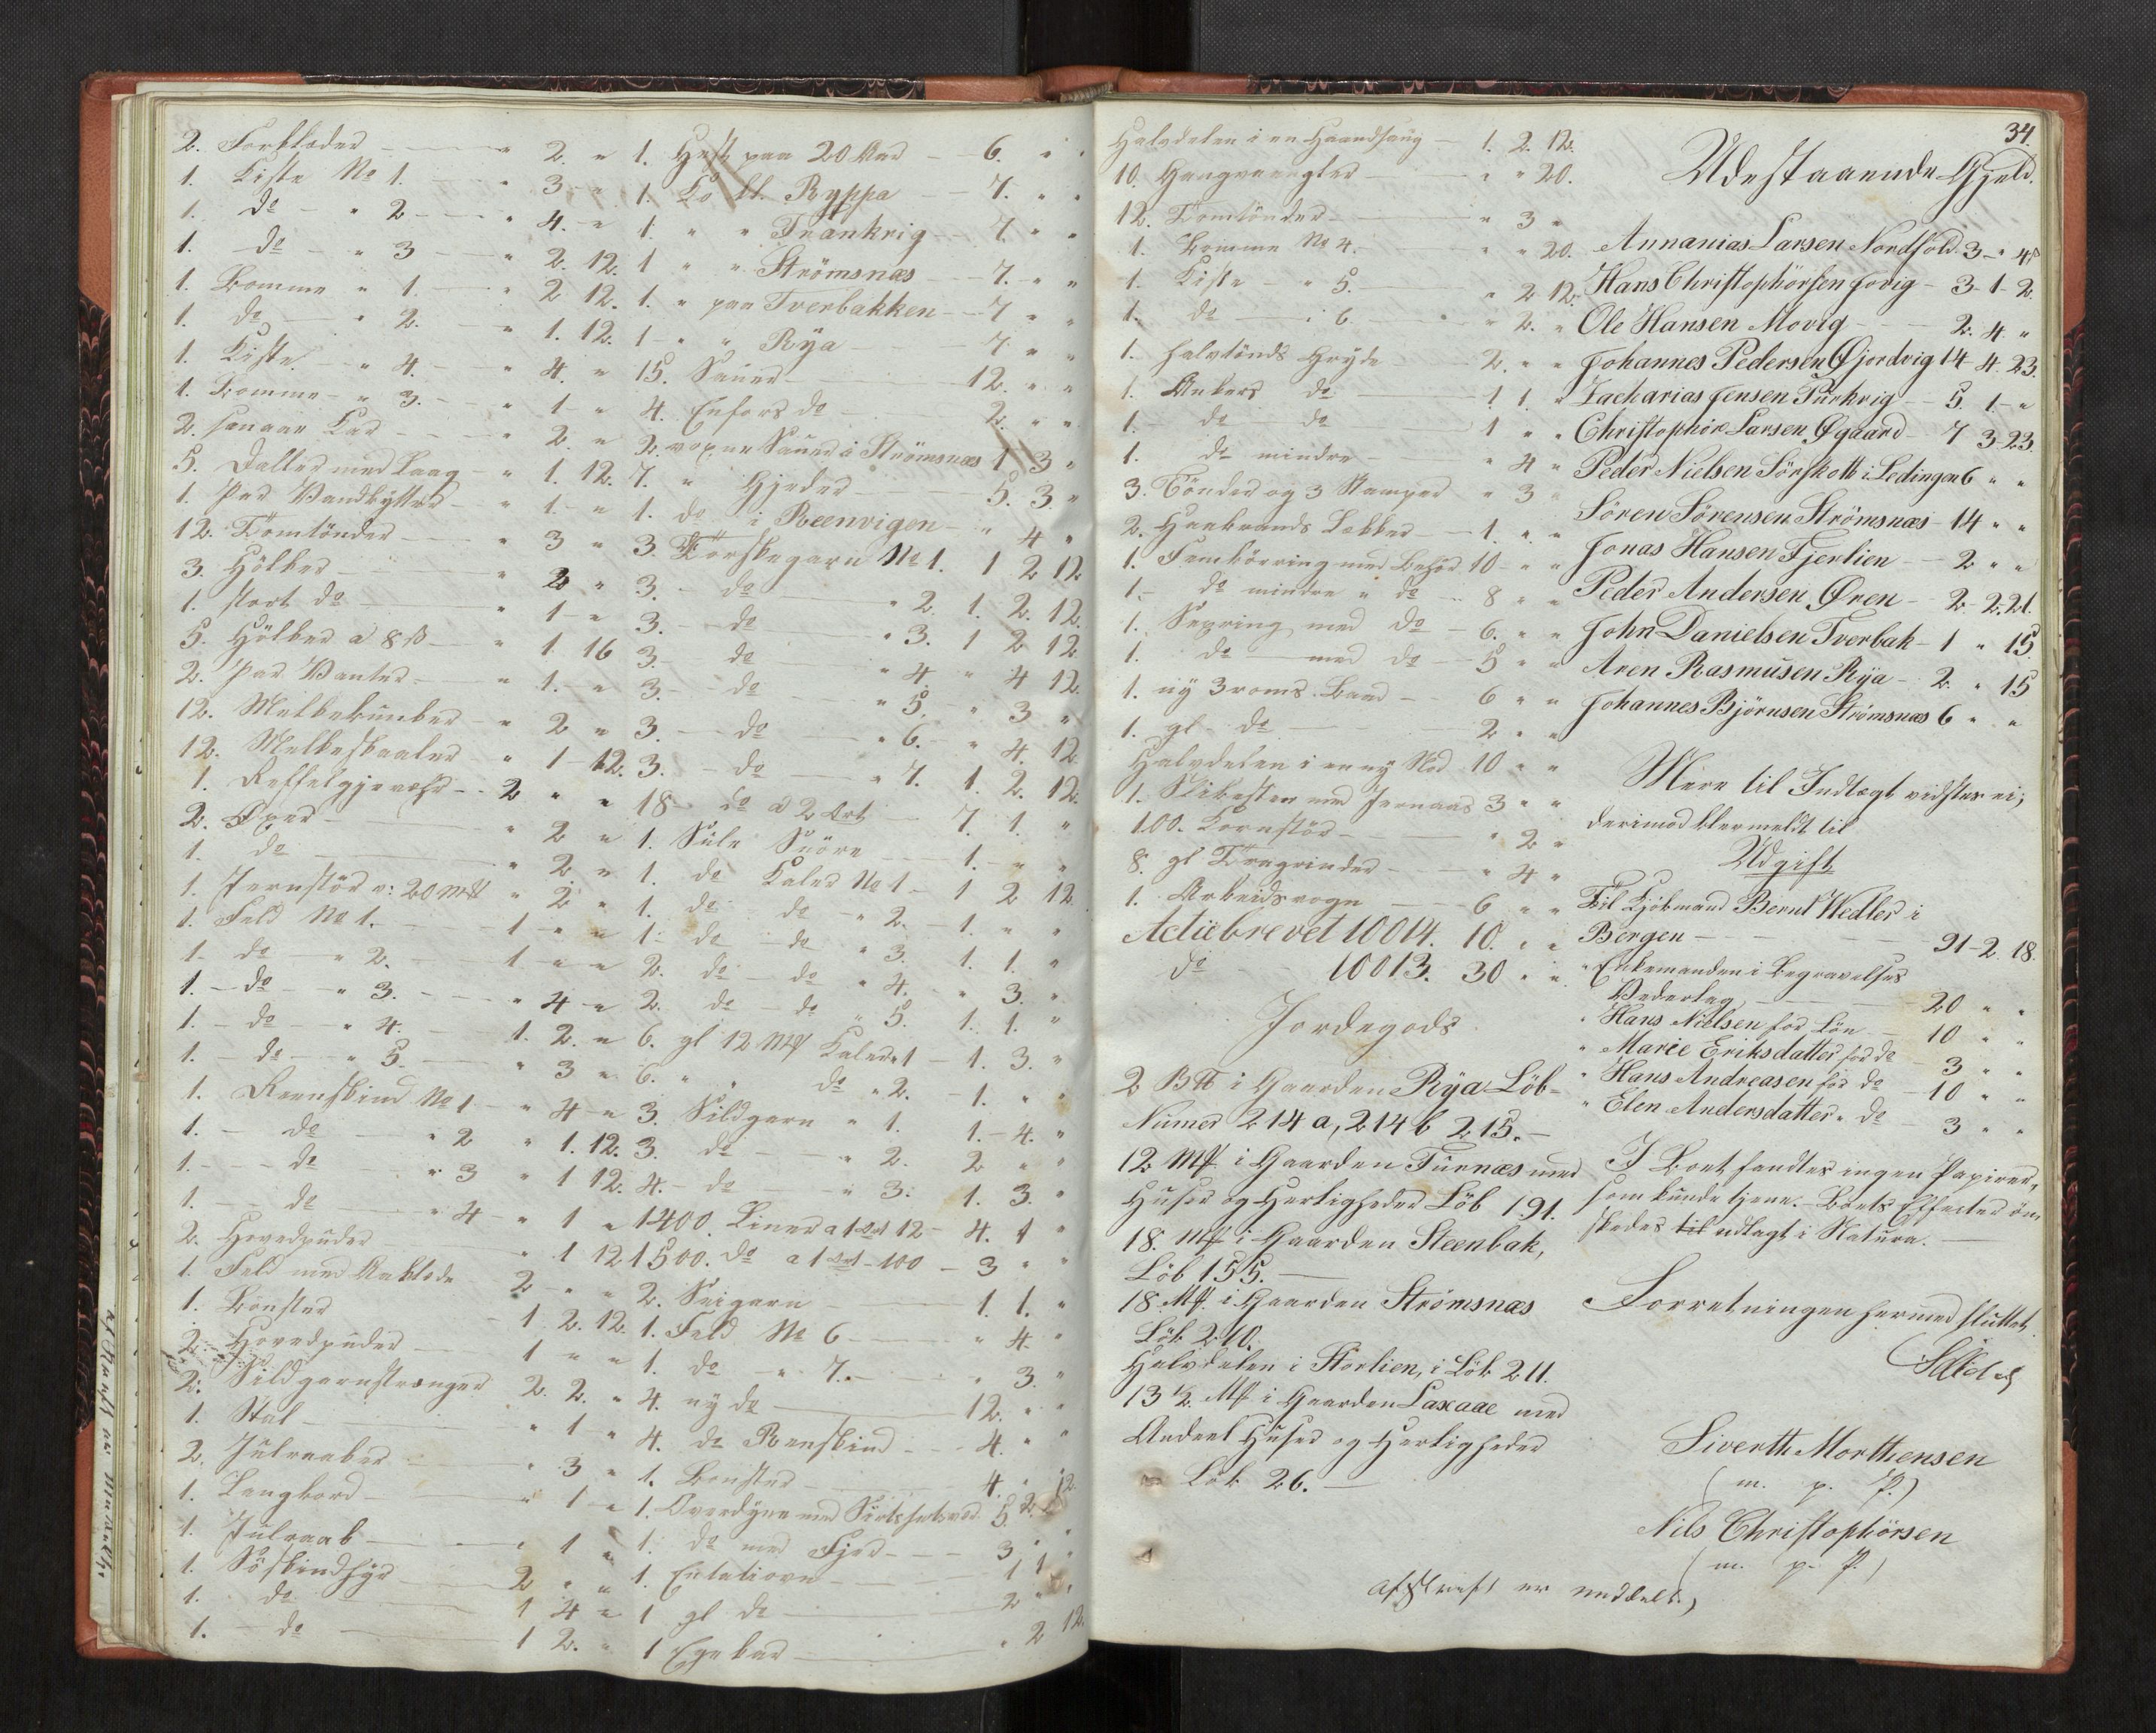 2. Forklæder — " 2. "
1. Kiste No 1. " 3 "
1. do " 2 — " 4. "
1. do " 3 — " 2. 12.
1. Komme " 1. — " 2 12.
1. do " 2. — " 1. 12.
1. Kiste " 4. — " 4. "
1. Komme " 3. — " 1 "
2. Kar — " 2. "
5. Daller med Laag — " 1. 12.
1. Par Vandbøtter — " 1. "
12. Tomtönder — " 3 "
3. Hölker — " 2 "
1. stort do — " 1 "
5. Hölker a 8 ß — " 1 16
2. Par Vanter — " 1. "
12. Melkekimber — " 2 "
12. Melkeskaaler — " 1 12.
1. Reffelgjevæhr — 2 " "
2. Øxer — " 2 "
1. do — " 2. "
1. Jernstör v: 20 m — " 2 "
1. Feld No 1. — 1 " "
1. do " 2. — 1 " "
1. do " 3. — " 4 "
1. do " 4. — 1. 2. "
1. do " 5. — " 3 "
1. Reenskind No 1 — " 4 "
1. do " 2 — " 1. 12.
1. do " 3 — " 1 12.
1. do " 4 — " 1 "
2. Hovedpuder — " 1 12
1. Feld med Aaklæde 2 " "
1. Bonster — 1 2. 12.
2. Hovedpuder — 1 " "
2. Sildgarnstrænger 2. 2. "
1. Stal — " 1 "
2. Julraaber — " 3 "
1. Langbord — " 1 "
1. Julraab — " 1 "
1. Söskindhyr — 2 " "
1. do — 1 4 "
1. do — 1 2. "
1. Hest paa 20 Aar — 6. " "
1. Ko kl. Ryppa — 7. " "
1. " " Frankrig — 7. " "
1 " " Strömsnæs — 7. " "
1. " paa Tverbakken — 7 " "
1 " " Rya — 7 " "
15. Sauer — 12. " "
4. do — 2. " "
2. voxne Sauer i Strömsnæs 1 3 "
7. " Gjeder — 5. 3. "
1. do i Reenvigen — " 4 "
3. Torskegarn No 1. 1 2 12
3. do " 2. 1. 2. 12.
3. do " 3. 1 2 12
3. do " 4 " 4 12.
3. do " 5. " 3 "
3. do " 6. " 4. 12
3. do " 7. 1. 2. 12.
18 do a 2 Ort — 7. 1. "
1. Snöre — 1. " "
1. do Kaler No 1 — 1 2 12
1. do do " 2. — 1. " "
1. do do " 3. 1. 1. "
2. do do " 4. " 3. "
2. do do " 5. 1. 1. "
6. gl 12 Kaler " 1 — 1. 3. "
6. " " do " 2. — 1. " "
3 Sildgarn " 1. 1. 4. "
3. do " 2. 2 " "
4. do " 3. 1. 3. "
1400. Liner a 1 Ort 12 — 4. 1 "
1500. do a 1 Ort 100 — 3 " "
2. Seigarn — 1. 1. "
1. Feld No 6 — " 4. "
1. do " 7. — " 3. "
4. ny do — 12. " "
4. do Renskind — 4. " "
1. Bonster — 4. " 12.
1. Overdyne med — 5. 2.
1. do med Fjer — 3 " "
1. — 1 1 "
1 gl do — 2 " "
1 Egekar — " 2 12.
34.
Halvdelen i en Haandsaug — 1. 2. 12.
10. Hængenægler — " " 20.
12. Tomtönder — " 3 "
1. Komme No 4. — " " 20.
1. Kiste " 5. — " 2 12.
1. do " 6 — " 2. "
1. halvtönds Gryde — 2. " "
1. Ankers do — 1 1. "
1. do do — 1 " "
1. do mindre — " 4 "
3. Tönder og 3 Stamper " 3 "
2. Lækker — 1. " "
1. Femböring med Behör 10 " "
1. do mindre " do 8 " "
1. Sexring med do — 6. " "
1. do med do — 5 " "
1. ny 3roms Baad — 6 " "
1. gl do — 2 " "
Halvdelen i en ny Nod 10 " "
1. Slibesten med Jernaas 3 " "
100. Kornstör — " 2 "
8. gl Töregrinder — " 4 "
1. Arbeidsvogn — 6 " "
Actiebrevet 10014. 10. " "
do 10013. 30 " "
Jordegods
2 i Gaarden Rÿa Löb-
Numer 214 a, 214 b 215. —
12 i Gaarden Furnæs med
Huser og Herligheder Löb 191.
18. i Gaarden Steenbak,
Löb 155. —
18 i Gaarden Strömsnæs
Löb 210.
Halvdelen i Storlien, i Löb 211.
13½ i Gaarden Laxaae med
Andeel Huser og Herligheder
Löb 26. —
Udestaaende Gjeld.
Annanias Larsen Nordfold 3 " 4
Hans Christophörsen Jovig — 3 1 2
Ole Hansen Movig — 2. 4. "
Johannes Pedersen Gjordvig 14 4. 23.
Zacharias Jensen Purkvig — 5. 1. "
Christophör Larsen Øgaard — 7 3 23.
Peder Nielsen Sörskott i Ledingen 6 " "
Sören Sörensen Strömsnæs — 14 " "
Jonas Hansen Fjerlien — 2 " "
Peder Andersen Øren — 2 2. 21.
John Danielsen Tverbak — 1 " 15
Aren Rasmusen Rÿa — 2. " 15
Johannes Björnsen Strömsnæs 6 " "
Mere til Indtægt vidstes ei;
derimod blev meldt til
Udgift
Til Kjöbmand Bernt Wedler i
Bergen — 91 2. 18.
" Enkemanden i Begravelses
Vederlag — 20 " "
" Hans Nielsen for Lön — 10 " "
" Marie Eriksdatter for do 3 " "
" Hans Andreasen for do 10 " "
" Elen Andersdatter " do 3 " "
I Boet fandtes ingen Papirer,
som kunde tjene. Boets Effecter ön-
skedes til udlagt i Natura. —
Forretningen hermed sluttet.
Siverth Morthensen
(m. p. P.)
Nils Christophörsen
(m. p. P.)
Afskrift er meddelt,